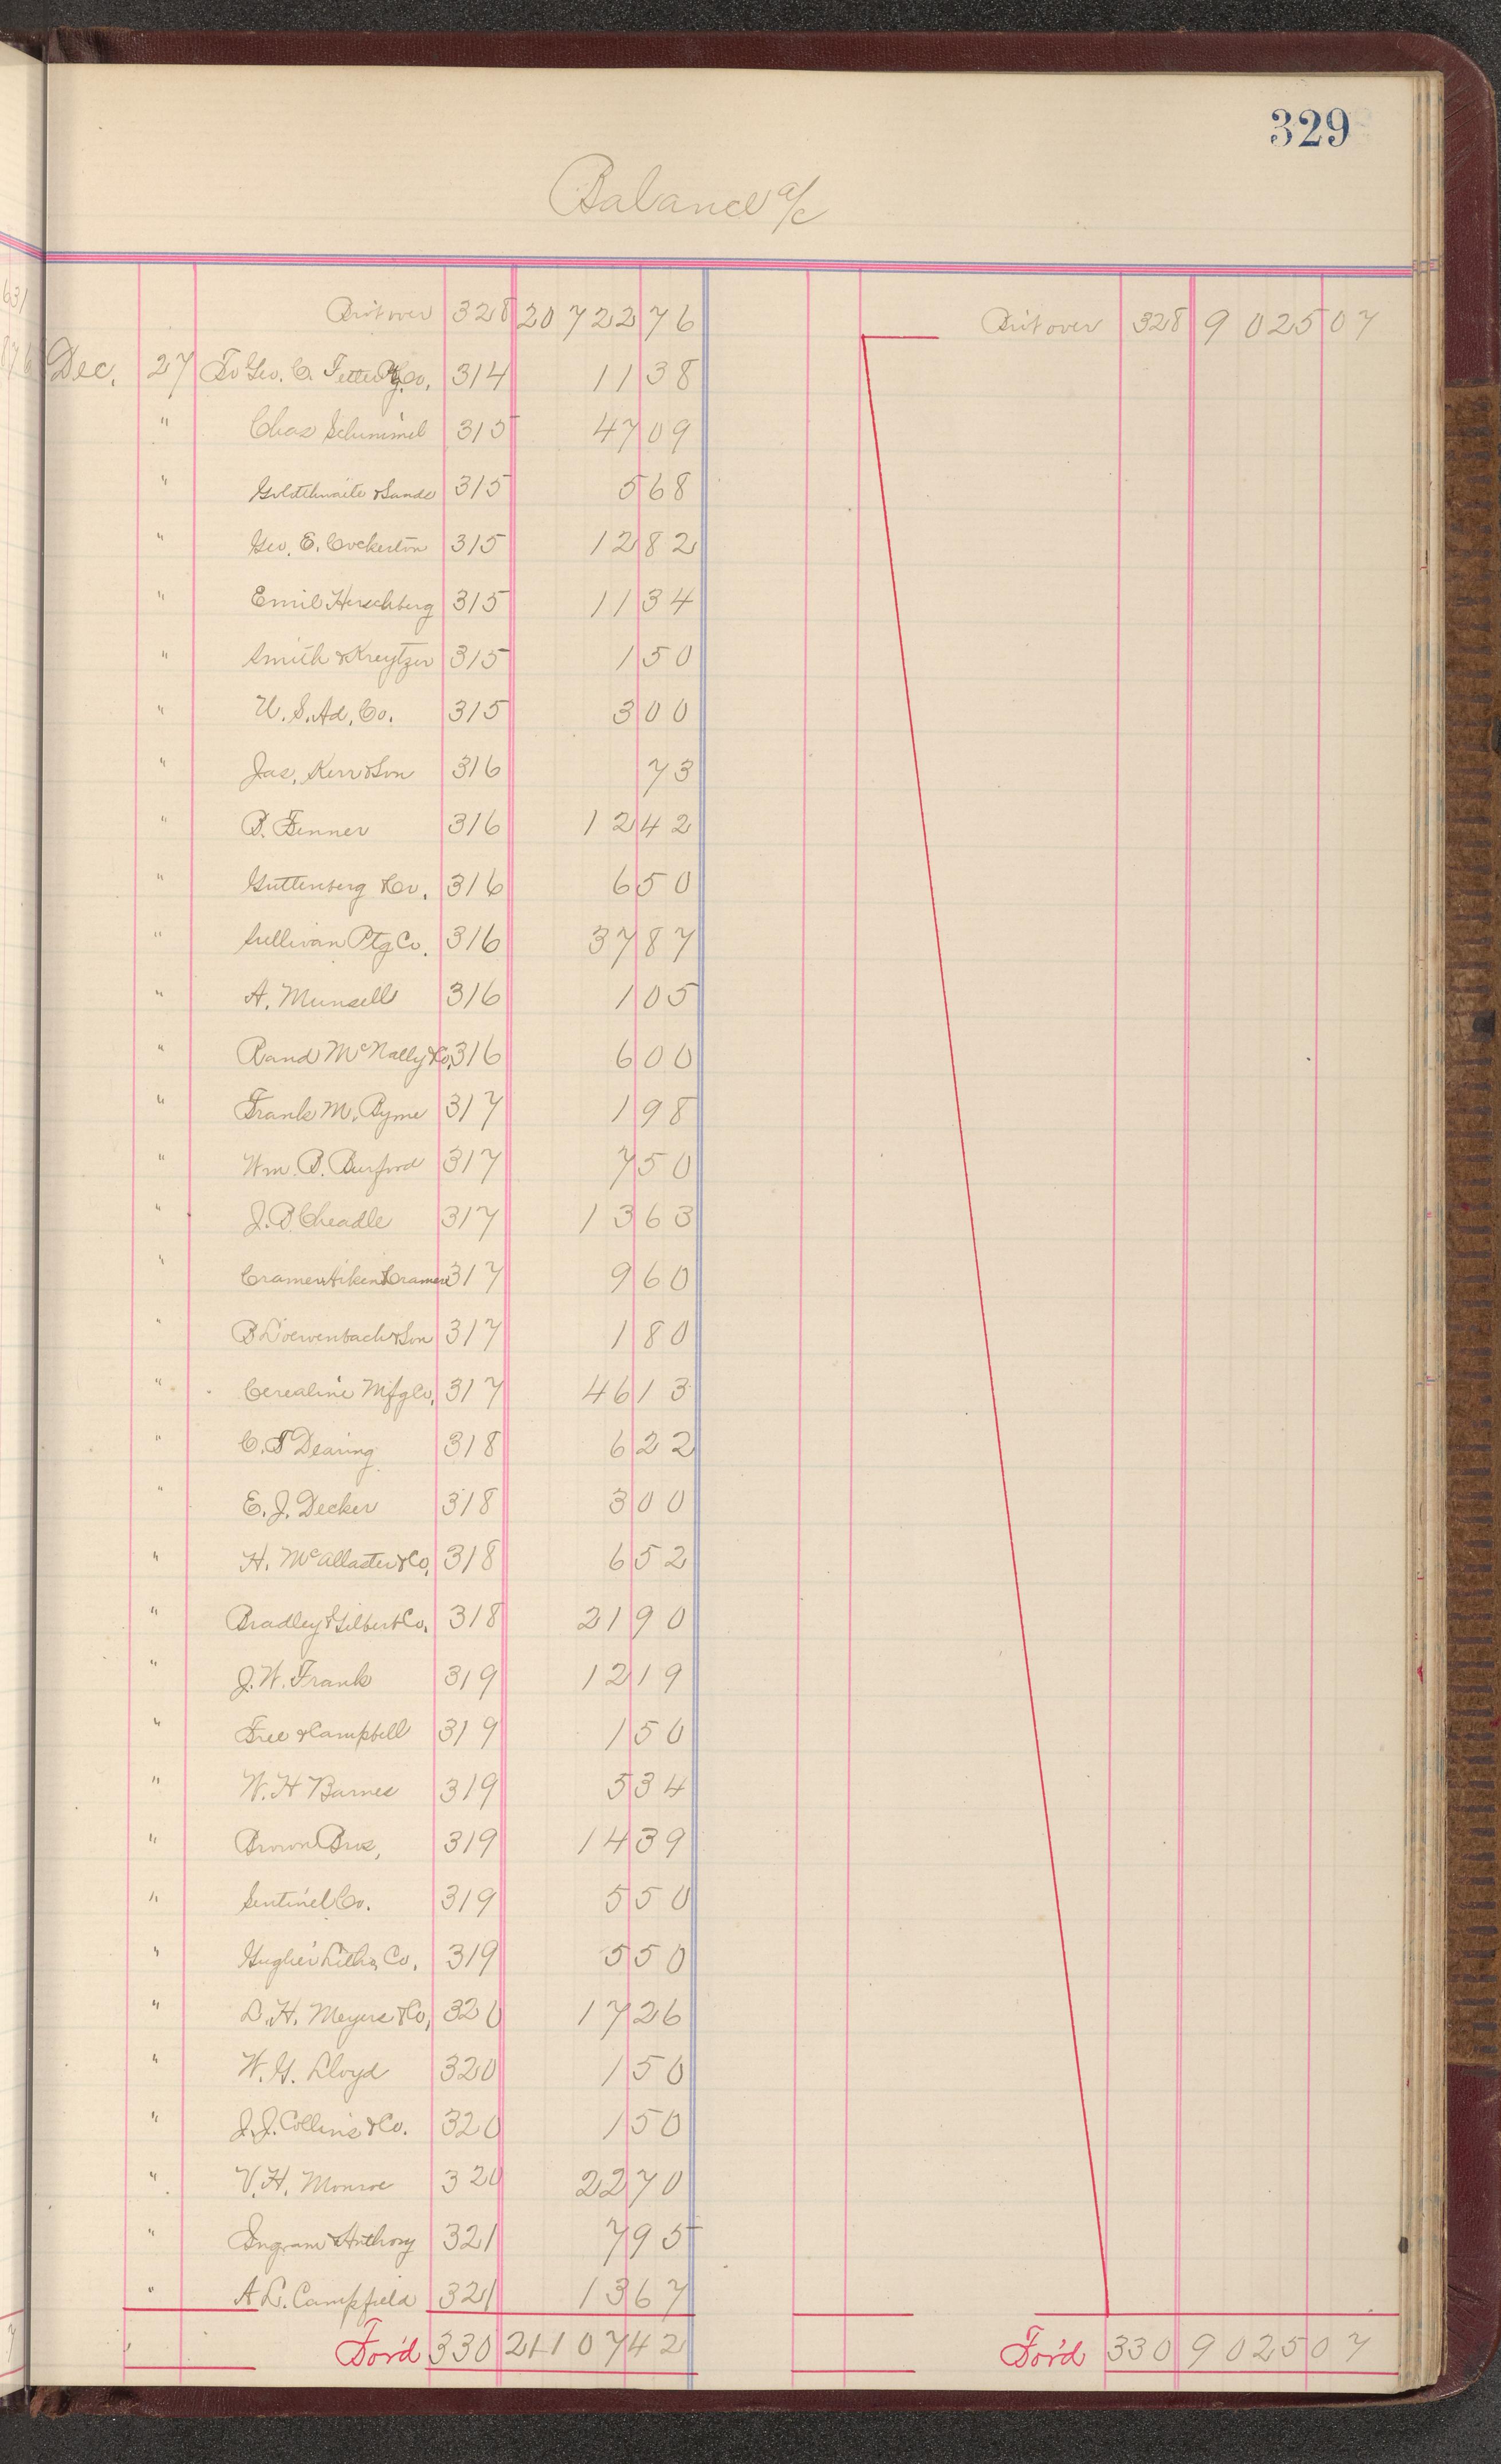 329
Balance a/c
Brit over 328 20 722 76 Brit over 328 9 025 07
Dec. 27 To Geo. C. Fetter Ptg Co. 314 11 38
" Chas Schimmel 315 47 09
" Goldthwaite & Sands 315 5 68
" Geo. E. Cockerton 315 12 82
" Emil Herschberg 315 11 34
" Smith & Kreytzer 315 1 50
" U. S. Ad. Co. 315 3 00
" Jas. Kerr & Son 316 73
" B. Fenner 316 12 42
" Guttenberg & Co. 316 6 50
" Sullivan Ptg Co. 316 37 87
" A. Munsell 316 1 05
" Rand McNally & Co. 316 6 00
" Frank M. Pyme 317 1 98
" Wm. B. Burford 317 7 50
" J. B. Cheadle 317 13 63
" Cramer Aiken & Cramer 317 9 60
" B Loewenbach & Son 317 1 80
" Cerealine Mfg Co. 317 46 13
" C. S Dearing 318 6 22
" E. J. Decker 318 3 00
" H. McAllaster & Co. 318 6 52
" Bradley & Gilbert Co. 318 21 90
" J. W. Frank 319 12 19
" Free & Campbell 319 1 50
" W. H Barnes 319 5 34
" Brown Bros, 319 14 39
" Sentinel Co. 319 5 50
" Gugler Litho, Co. 319 5 50
" D. H. Meyers & Co, 320 17 26
" W. G. Lloyd 320 1 50
" J. J. Collins & Co. 320 1 50
" V. H. Monroe 320 22 70
" Ingram & Anthony 321 7 95
" A L. Campfield 321 13 67
For'd 330 21 107 42 For'd 330 9 025 07